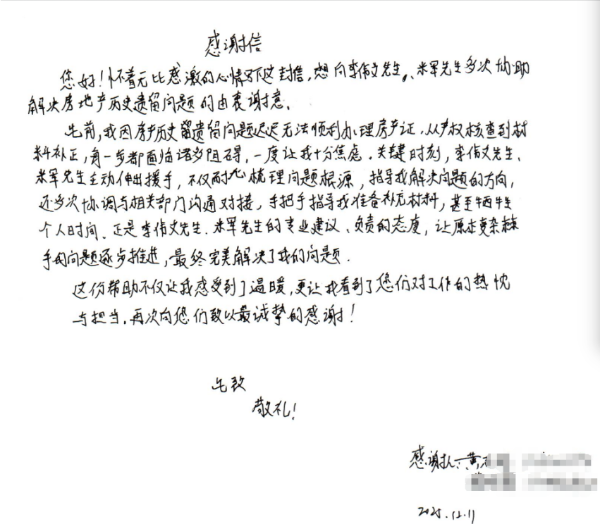 感谢信
您好！怀着无比感激的心情写下这封信，想向李伟文先生、朱军先生多次协助
解决房地产历史遗留问题的由衷谢意。
先前，我因房产历史遗留问题迟迟无法顺利办理房产证，从产权核查到材
料补正，每一步都面临诸多阻碍，一度让我十分焦虑。关键时刻，李伟文先生、
朱军先生主动伸出援手，不仅耐心梳理问题根源，指导我解决问题的方向，
还多次协调与相关部门沟通对接，手把手指导我准备补充材料，甚至牺牲
个人时间。正是李伟文先生、朱军先生的专业建议、负责的态度，让原本复杂棘
手的问题逐步推进，最终完美解决了我的问题。
这份帮助不仅让我感受到了温暖，更让我看到了您们对工作的热忱
与担当。再次向您们致以最诚挚的感谢！
此致
敬礼！
感谢人：黄
2025.12.11